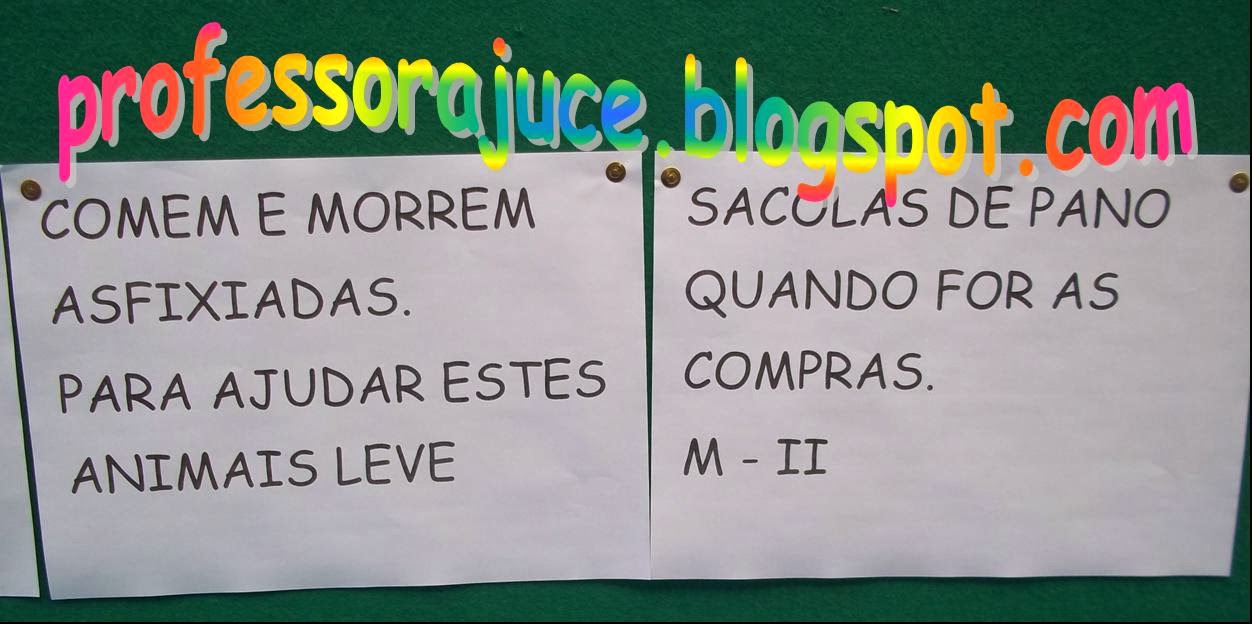 professorajuce.blogspot.com
COMEM E MORREM
ASFIXIADAS.
PARA AJUDAR ESTES
ANIMAIS LEVE
SACOLAS DE PANO
QUANDO FOR AS
COMPRAS.
M - II